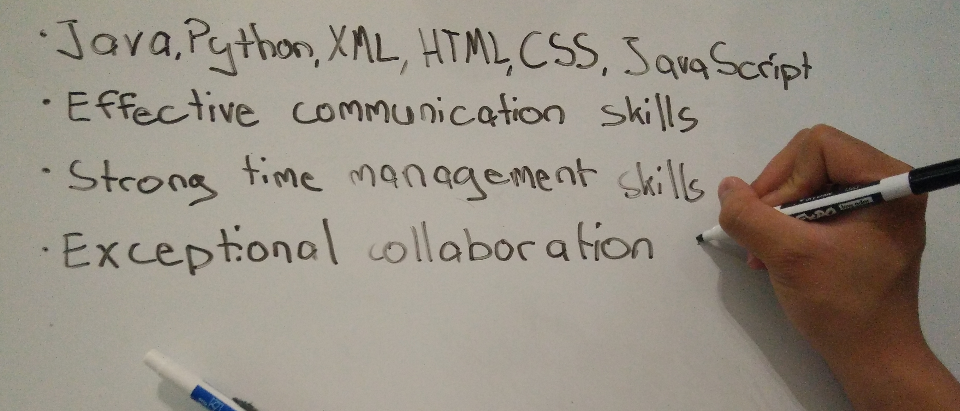 · Java, Python, XML, HTML, CSS, JavaScript
· Effective communication skills
· Strong time management skills
· Exceptional collaboration
EXPO